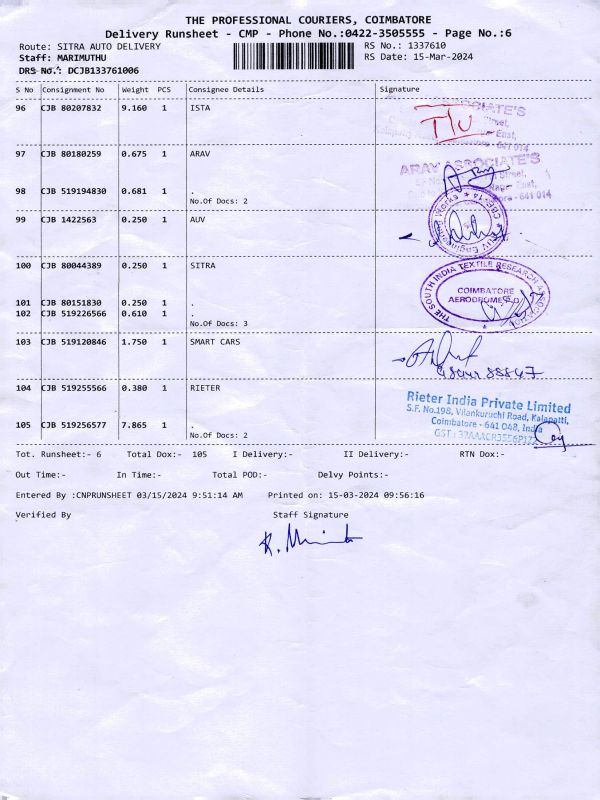 THE PROFESSIONAL COURIERS, COIMBATORE
Delivery Runsheet - CMP - Phone No.:0422-3505555 - Page No.:6
Route: SITRA AUTO DELIVERY
RS No.: 1337610
Staff: MARIMUTHU
RS Date: 15-Mar-2024
DRS No.: DCJB133761006
S No Consignment No Weight PCS Consignee Details Signature
96 CJB 80207832 9.160 1 ISTA
T/U
97 CJB 80180259 0.675 1 ARAV
ARAV ASSOCIATE'S
98 CJB 519194830 0.681 1 .
No.Of Docs: 2
99 CJB 1422563 0.250 1 AUV
100 CJB 80044389 0.250 1 SITRA
THE SOUTH INDIA TEXTILE RESEARCH ASSOCIATION
COIMBATORE
AERODROME P.O
101 CJB 80151830 0.250 1 .
102 CJB 519226566 0.610 1 .
No.Of Docs: 3
103 CJB 519120846 1.750 1 SMART CARS
104 CJB 519255566 0.380 1 RIETER
Rieter India Private Limited
S.F. No.198, Vilankuruchi Road, Kalapatti,
Coimbatore - 641 048, India
105 CJB 519256577 7.865 1 .
No.Of Docs: 2
Tot. Runsheet:- 6 Total Dox:- 105 I Delivery:- II Delivery:- RTN Dox:-
Out Time:- In Time:- Total POD:- Delvy Points:-
Entered By :CNPRUNSHEET 03/15/2024 9:51:14 AM Printed on: 15-03-2024 09:56:16
Verified By Staff Signature